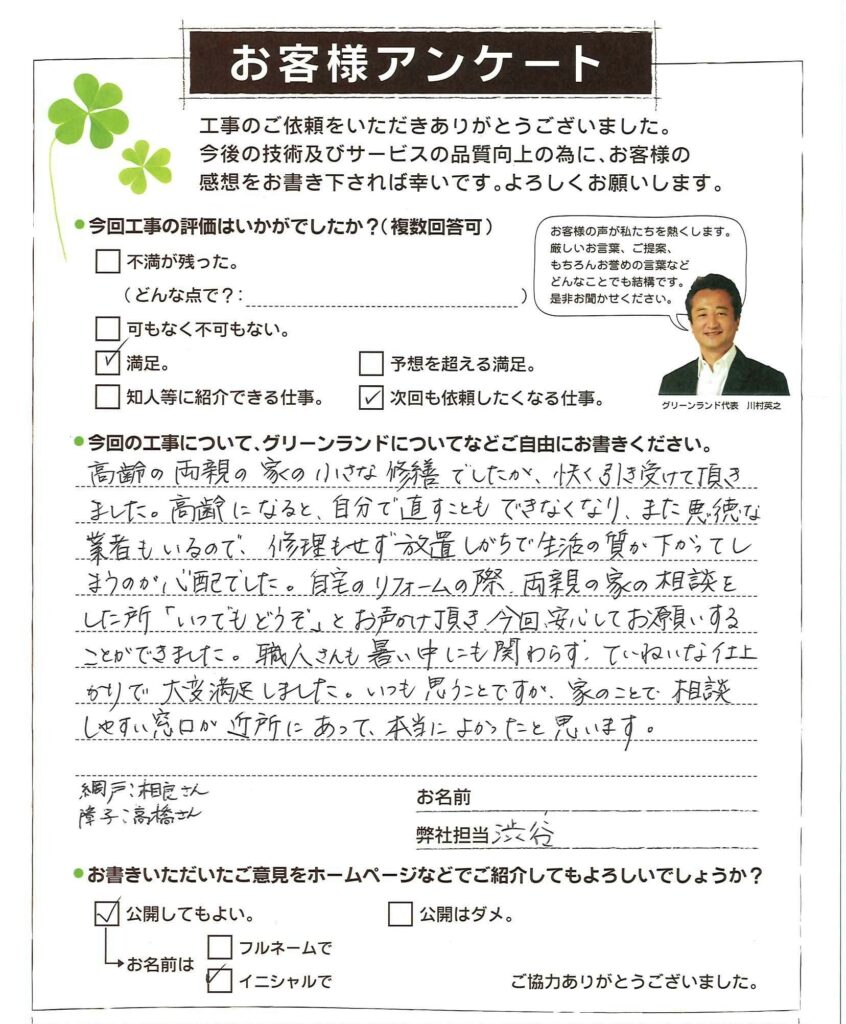 お客様アンケート
工事のご依頼をいただきありがとうございました。
今後の技術及びサービスの品質向上の為に、お客様の
感想をお書き下されば幸いです。よろしくお願いします。
●今回工事の評価はいかがでしたか？(複数回答可)
不満が残った。
(どんな点で？: )
可もなく不可もない。
満足。
予想を超える満足。
知人等に紹介できる仕事。
次回も依頼したくなる仕事。
お客様の声が私たちを熱くします。
厳しいお言葉、ご提案、
もちろんお誉めの言葉など
どんなことでも結構です。
是非お聞かせください。
グリーンランド代表 川村英之
●今回の工事について、グリーンランドについてなどご自由にお書きください。
高齢の両親の家の小さな修繕でしたが、快く引き受けて頂き
ました。高齢になると、自分で直すこともできなくなり、また悪徳な
業者もいるので、修理もせず放置しがちで生活の質が下がってし
まうのが心配でした。自宅のリフォームの際、両親の家の相談を
した所「いつでもどうぞ」とお声がけ頂き、今回、安心してお願いする
ことができました。職人さんも暑い中にも関わらず、ていねいな仕上
がりで大変満足しました。いつも思うことですが、家のことで相談
しやすい窓口が近所にあって、本当によかったと思います。
網戸:相良さん
障子:高橋さん
お名前
弊社担当 渋谷
●お書きいただいたご意見をホームページなどでご紹介してもよろしいでしょうか？
公開してもよい。
公開はダメ。
お名前は
フルネームで
イニシャルで
ご協力ありがとうございました。